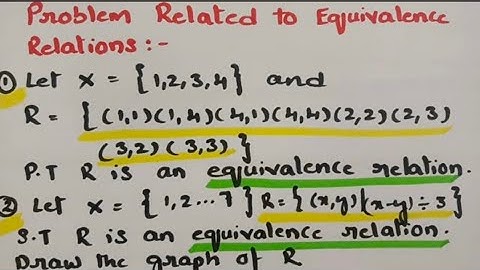 Problem Related to Equivalence
Relations :-
① Let X = {1,2,3,4} and
R = {(1,1)(1,4)(4,1)(4,4)(2,2)(2,3)
(3,2)(3,3)}
P.T R is an equivalence relation.
② Let X = {1,2...7} R = {(x,y)|(x-y)÷3}
S.T R is an equivalence relation.
Draw the graph of R